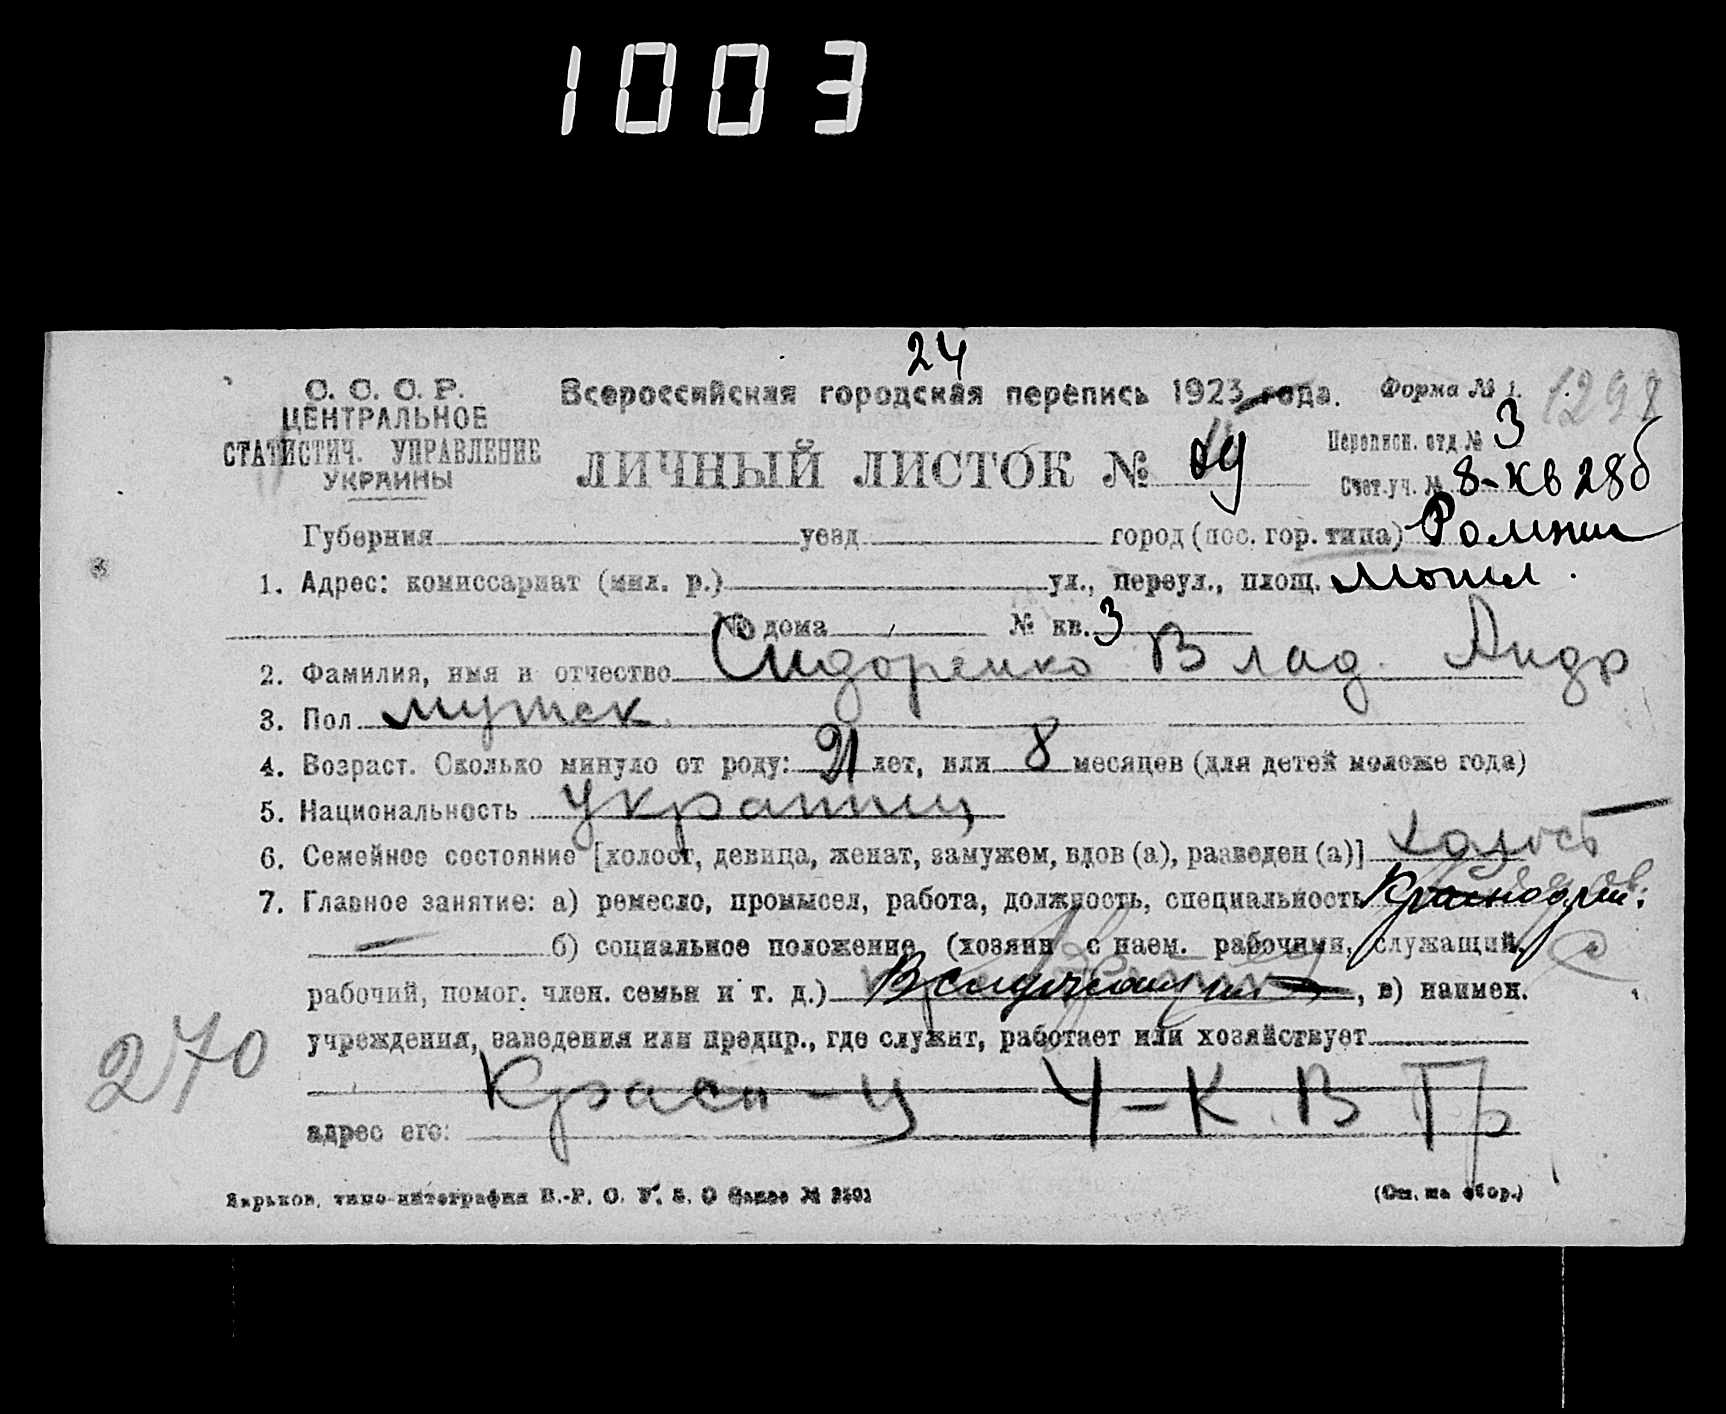 1003
24
С. С. С. Р.
ЦЕНТРАЛЬНОЕ
СТАТИСТИЧ. УПРАВЛЕНИЕ
УКРАИНЫ
Всероссийская городская перепись 1923 года.
Форма № 1. 1298
ЛИЧНЫЙ ЛИСТОК №
Переписн. отд № 3
Счет.уч. № 8-кв 28б
Губерния уезд город (пос. гор. типа) Ромны
1. Адрес: комиссариат (мил. р.) ул., переул., площ.
№ дома № кв. 3
2. Фамилия, имя и отчество Сидоренко Влад. Андр
3. Пол мужск
4. Возраст. Сколько минуло от роду: 21 лет, или 8 месяцев (для детей моложе года)
5. Национальность украинц
6. Семейное состояние [холост, девица, женат, замужем, вдов (а), разведен (а)] холост
7. Главное занятие: а) ремесло, промысел, работа, должность, специальность
б) социальное положение (хозяин с наем. рабочими, служащий,
рабочий, помог. член. семьи и т. д.) , в) наимен.
учреждения, заведения или предпр., где служит, работает или хозяйствует
270
Красн-ц Ч-К. В Тр
адрес его:
Харьков, типо-литография В.-Р. О. У. З. О Заказ №
(См. на обор.)